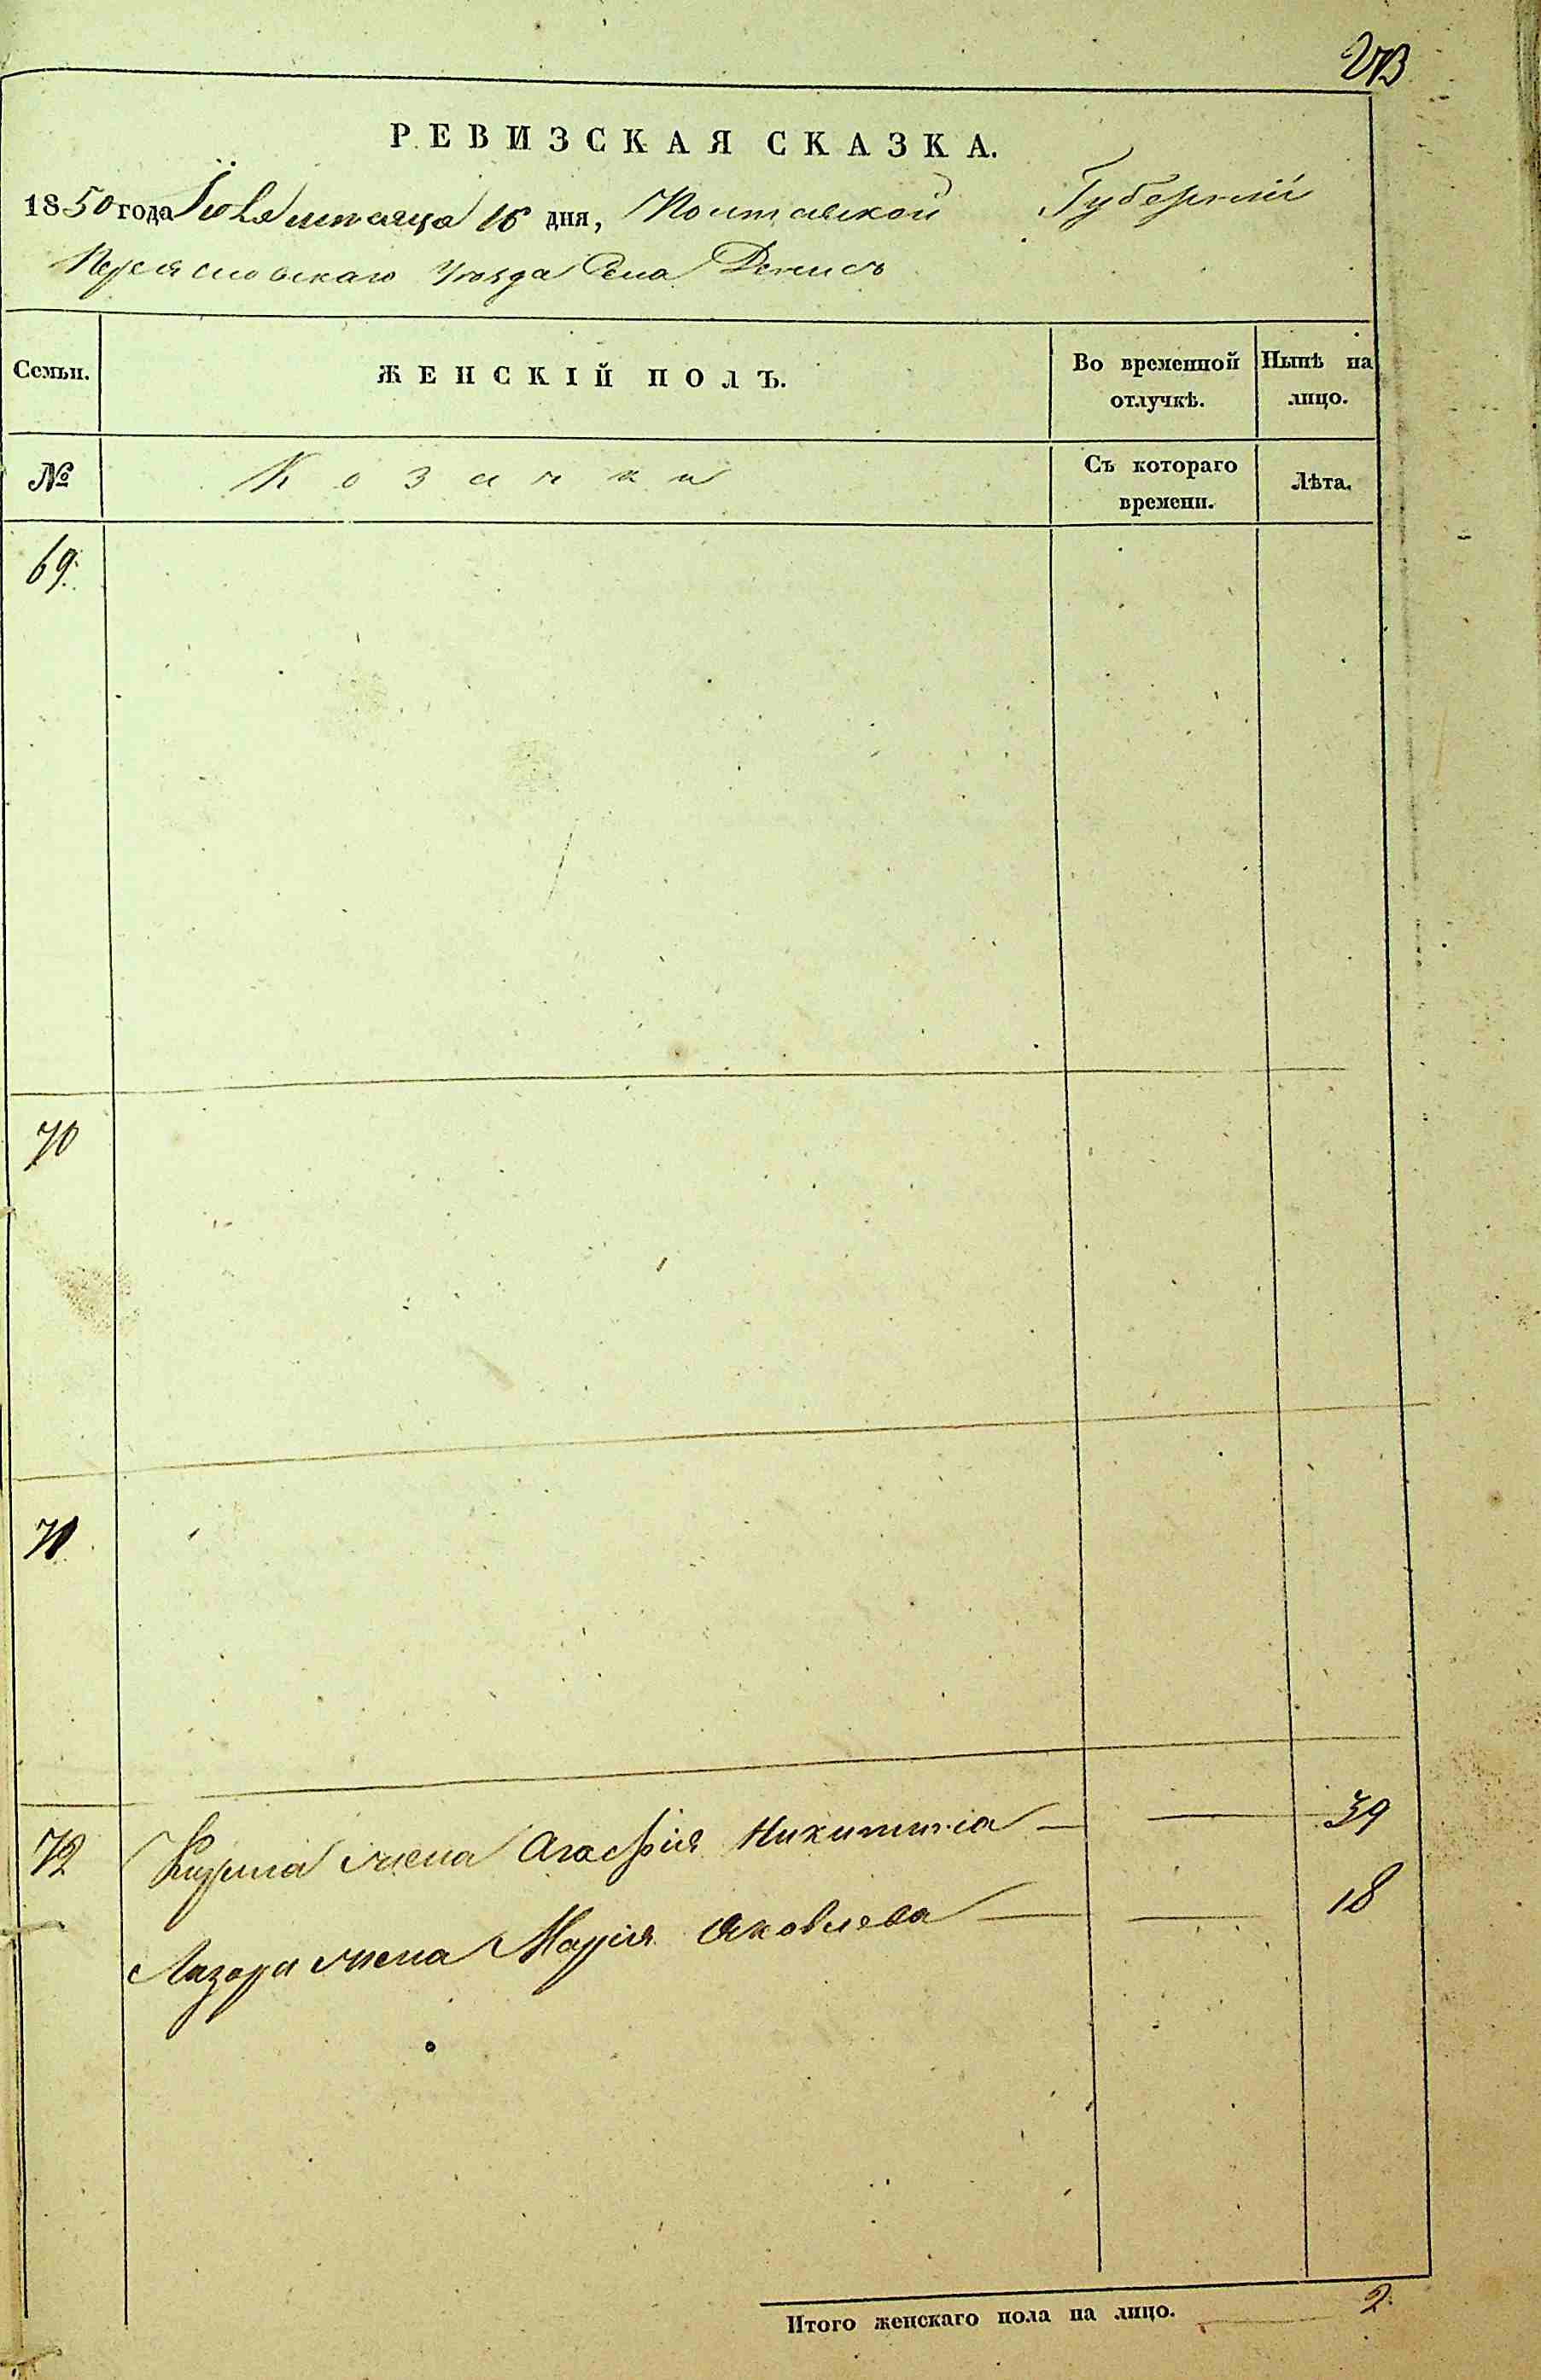 273
РЕВИЗСКАЯ СКАЗКА.
1850 года Іюля мѣсяца 16 дня, Полтавской Губерніи
Переясловскаго Уѣзда Села Денисъ
Семьи. ЖЕНСКІЙ ПОЛЪ. Во временной отлучкѣ. Нынѣ на лицо.
№ Козачки Съ котораго времени. Лѣта.
69.
70
71
72 Кирила жена Агафія Никитина — — 39
Лазаря жена Марія Яковлева — — 18
Итого женскаго пола на лицо. 2.